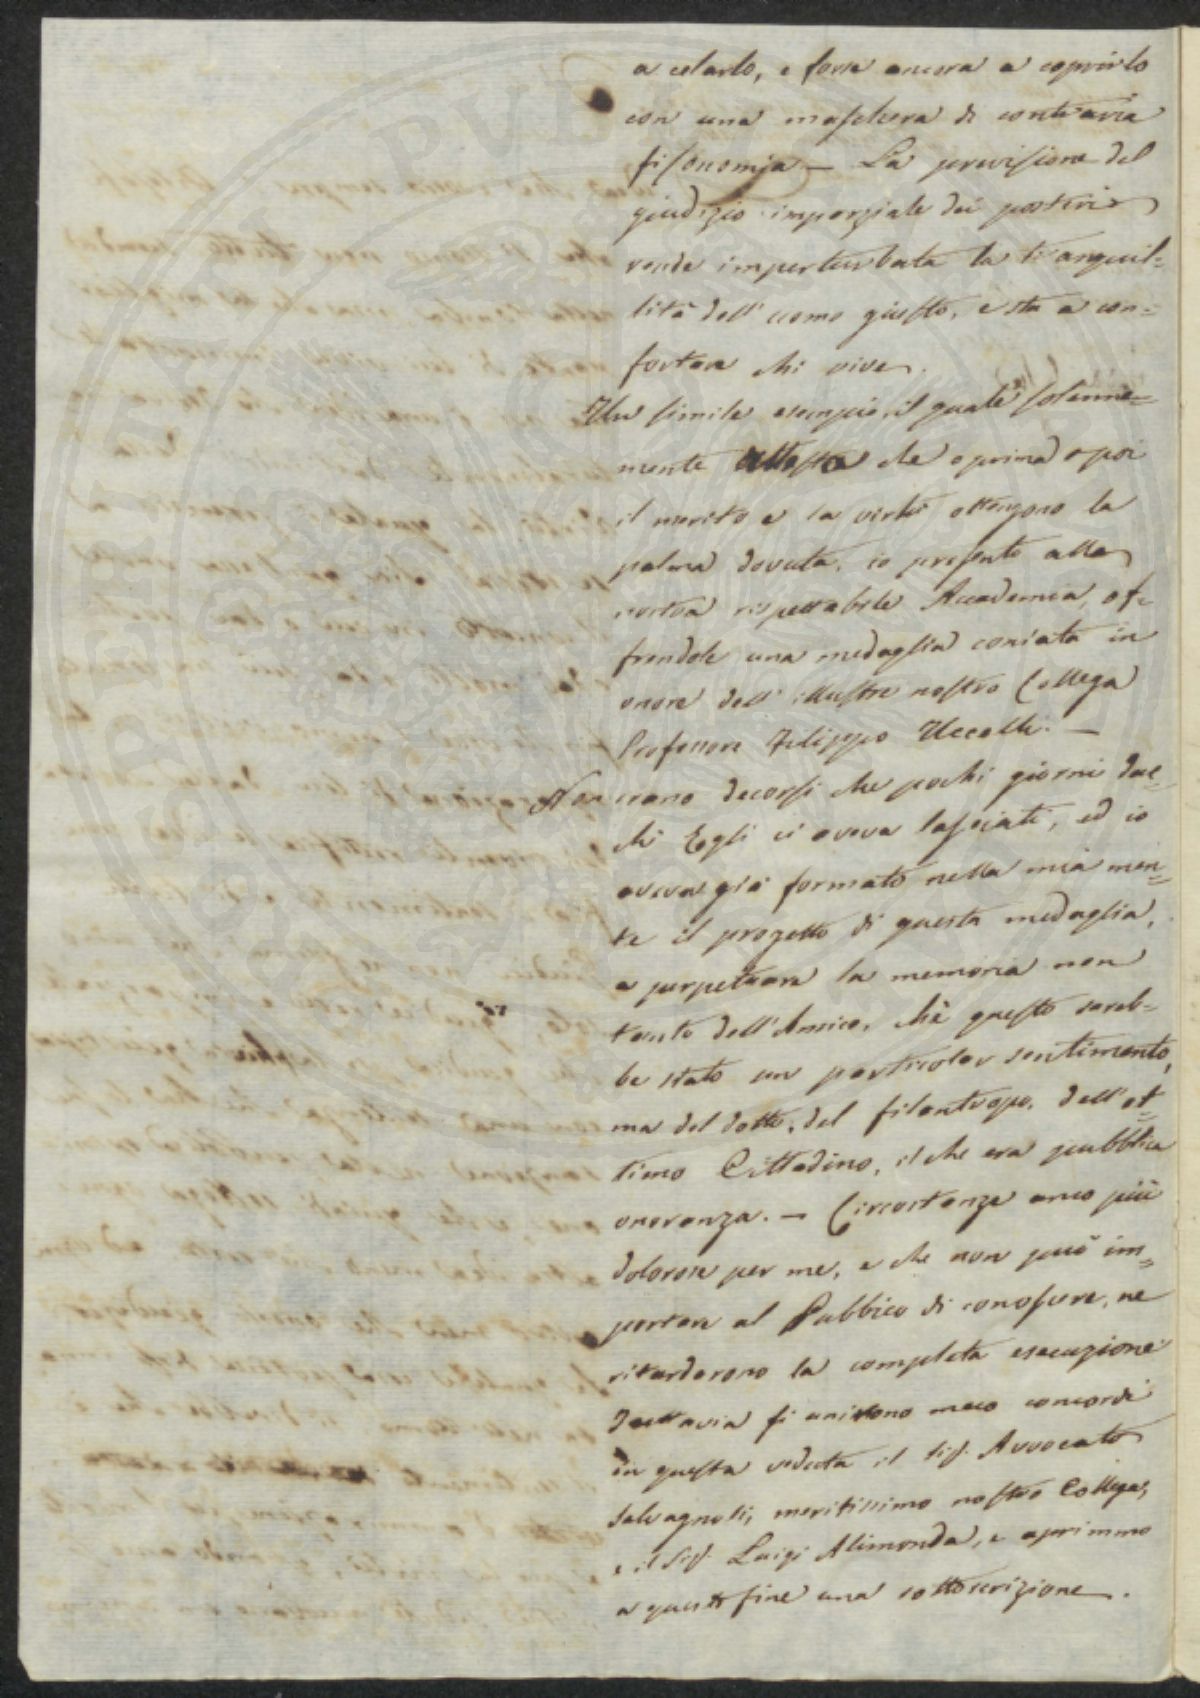 a celarlo, e forse ancora a coprirlo
con una maschera di contraria
fisonomia — La previsione del
giudizio imparziale dei posteri
rende imperturbata la tranquil=
lità dell'uomo giusto, e sta a con=
fortare chi vive.
Un simile esempio, il quale solenne=
mente attesta che o prima o poi
il merito e la virtù ottengono la
palma dovuta, io presento alla
nostra rispettabile Accademia, of=
frendole una medaglia coniata in
onore dell'illustre nostro Collega
Professore Filippo Uccelli. —
Non erano decorsi che pochi giorni dac=
chè Egli ci aveva lasciati, ed io
aveva già formato nella mia men=
te il progetto di questa medaglia,
a perpetuare la memoria non
tanto dell'Amico, chè questo sareb=
be stato un particolar sentimento,
ma del dotto, del filantropo, dell'ot=
timo Cittadino, il che era pubblica
onoranza. — Circostanze anco più
dolorose per me, e che non può im=
portare al Pubblico di conoscere, ne
ritardarono la completa esecuzione
Tuttavia si unirono meco concordi
in questa veduta il Sig. Avvocato
Salvagnoli, meritissimo nostro Collega,
e il Sig. Luigi Alimonda, e aprimmo
a questo fine una sottoscrizione.